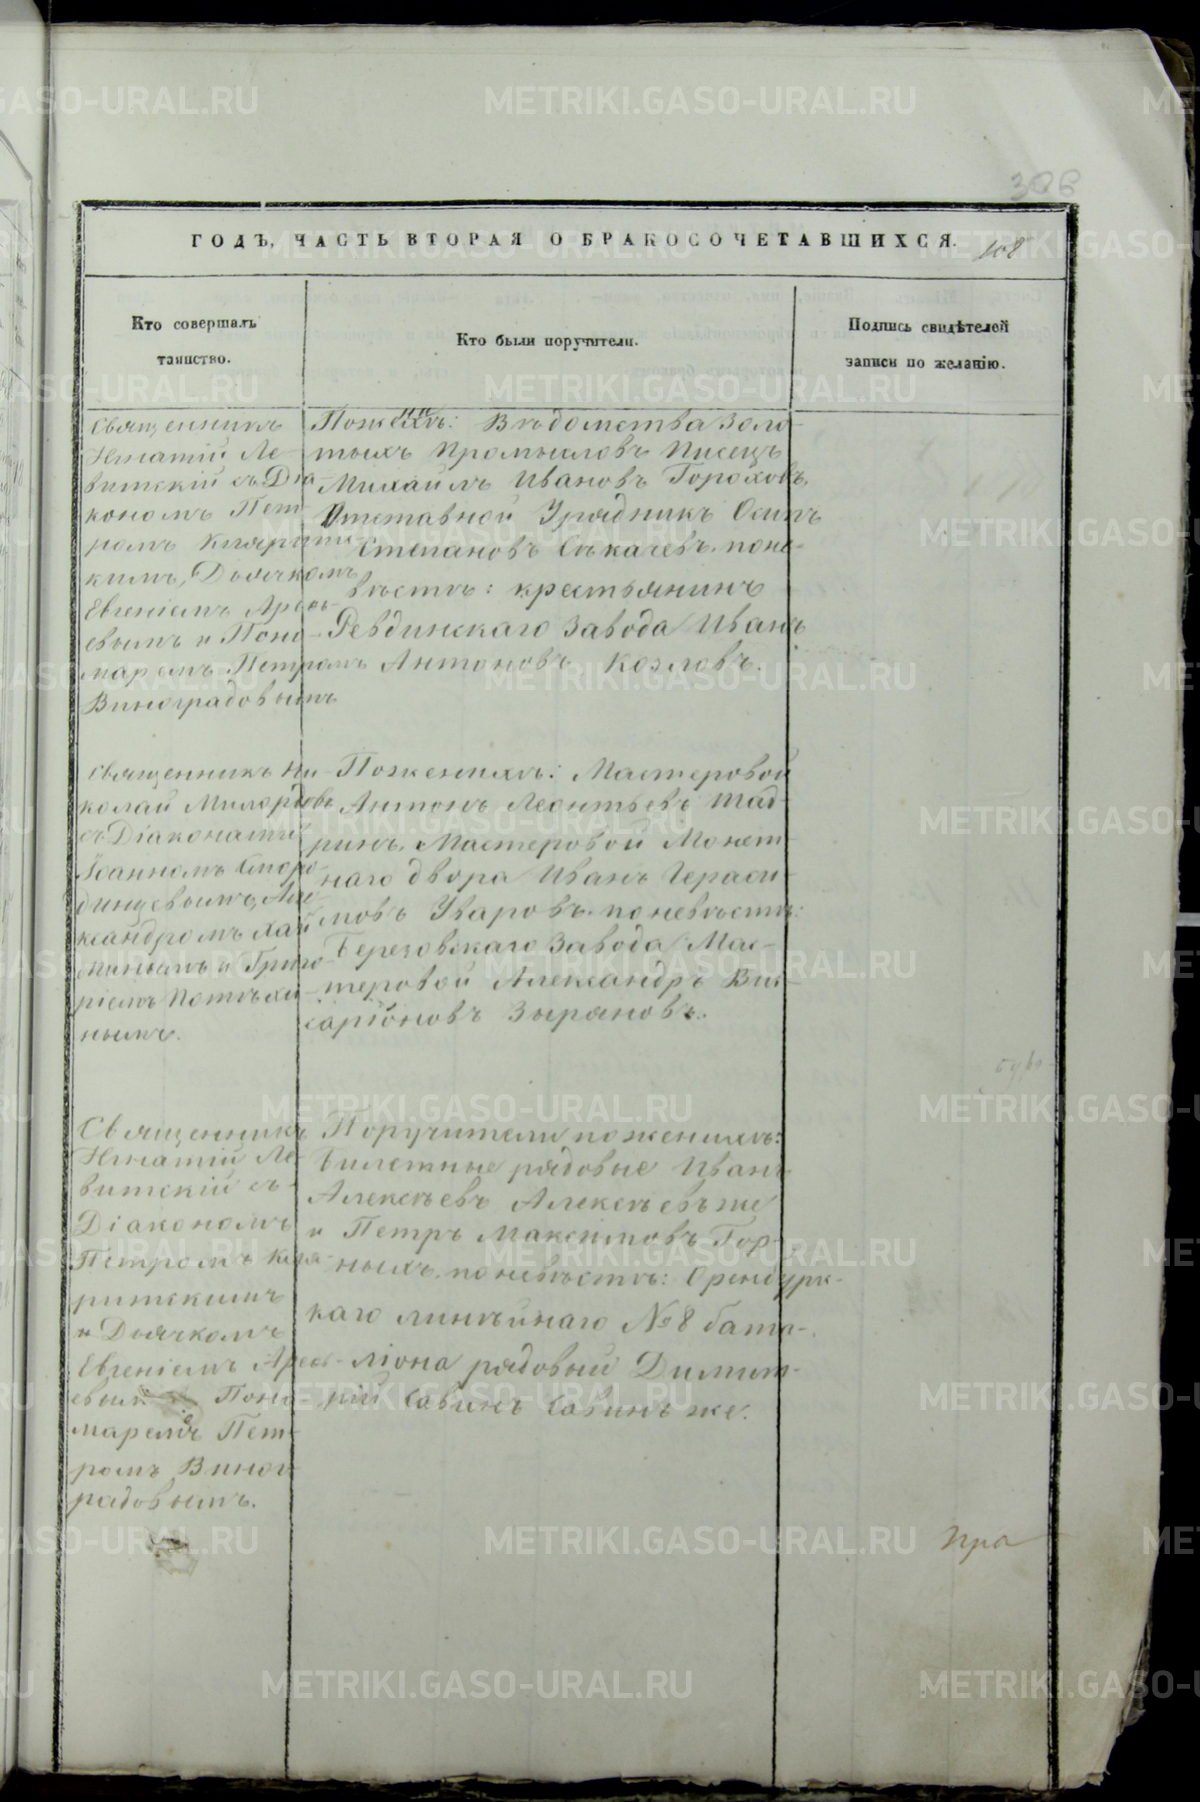 306
ГОДЪ, ЧАСТЬ ВТОРАЯ О БРАКОСОЧЕТАВШИХСЯ.
108
Кто совершалъ
таинство.
Кто были поручители.
Подпись свидѣтелей
записи по желанію.
Священникъ
Игнатій Ле-
витскій съ Діа-
кономъ Пет
ромъ Кляритс-
кимъ, Дьячкомъ
Евгеніемъ Арсень-
евымъ и Поно-
маремъ Петромъ
Виноградовымъ
По женихѣ: Вѣдомства Золо-
тыхъ Промысловъ Писецъ
Михайлъ Ивановъ Гороховъ,
Отставной Урядникъ Осипъ
Степановъ Секачевъ. по не-
вѣстѣ: крестьянинъ
Ревдинскаго Завода Иванъ
Антоновъ Козловъ.
Священникъ Ни-
колай Милордовъ
съ Діаконами
Іоанномъ Сторо-
динцевымъ, Але
ксандромъ
и Григо-
ріемъ Потѣхи
нымъ.
По женихѣ: Мастеровой
Антонъ Леонтьевъ Шад-
ринъ, Мастеровой Монет-
наго двора Иванъ Гераси-
мовъ Уваровъ. по невѣстѣ:
Березовскаго Завода Мас-
теровой Александръ Вис-
саріоновъ Зыряновъ.
Священникъ
Игнатій Ле-
витскій съ
Діакономъ
Петромъ Кля-
ритскимъ
и Дьячкомъ
Евгеніемъ Арсень-
евым и Поно
маремъ Пет-
ромъ Виног-
радовымъ.
Поручители по женихѣ:
Билетные рядовые Иванъ
Алексѣевъ Алексѣевъ же
и Петръ Максимовъ Гор-
ныхъ. по невѣстѣ: Оренбургс-
каго линѣйнаго № 8 бата-
ліона рядовый Димит-
рій Савинъ Савинъ же.
Пра
METRIKI.GASO-URAL.RU